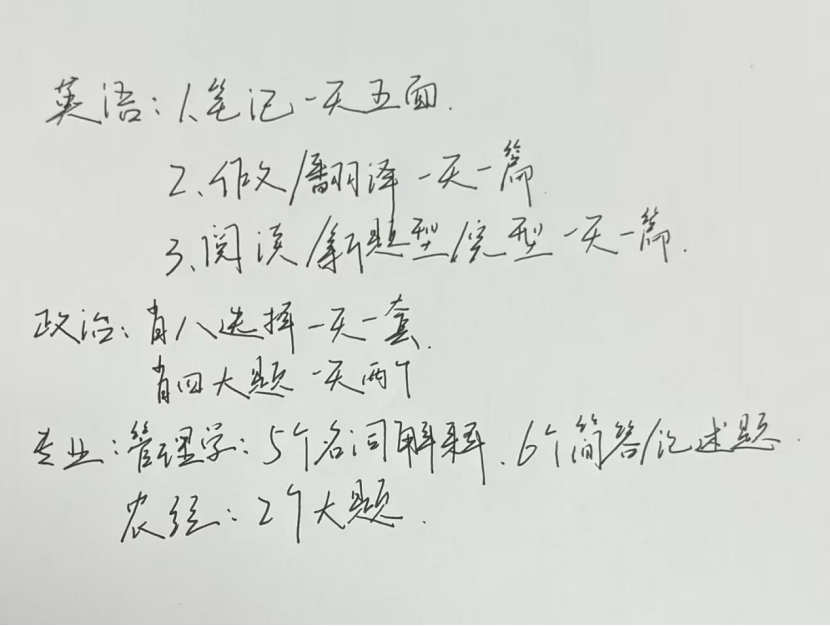 英语：1、笔记一天五面.
2、作文/翻译一天一篇
3、阅读/新题型/完型一天一篇.
政治：肖八选择一天一套.
肖四大题一天两个
专业：管理学：5个名词解释、6个简答/论述题.
农经：2个大题.